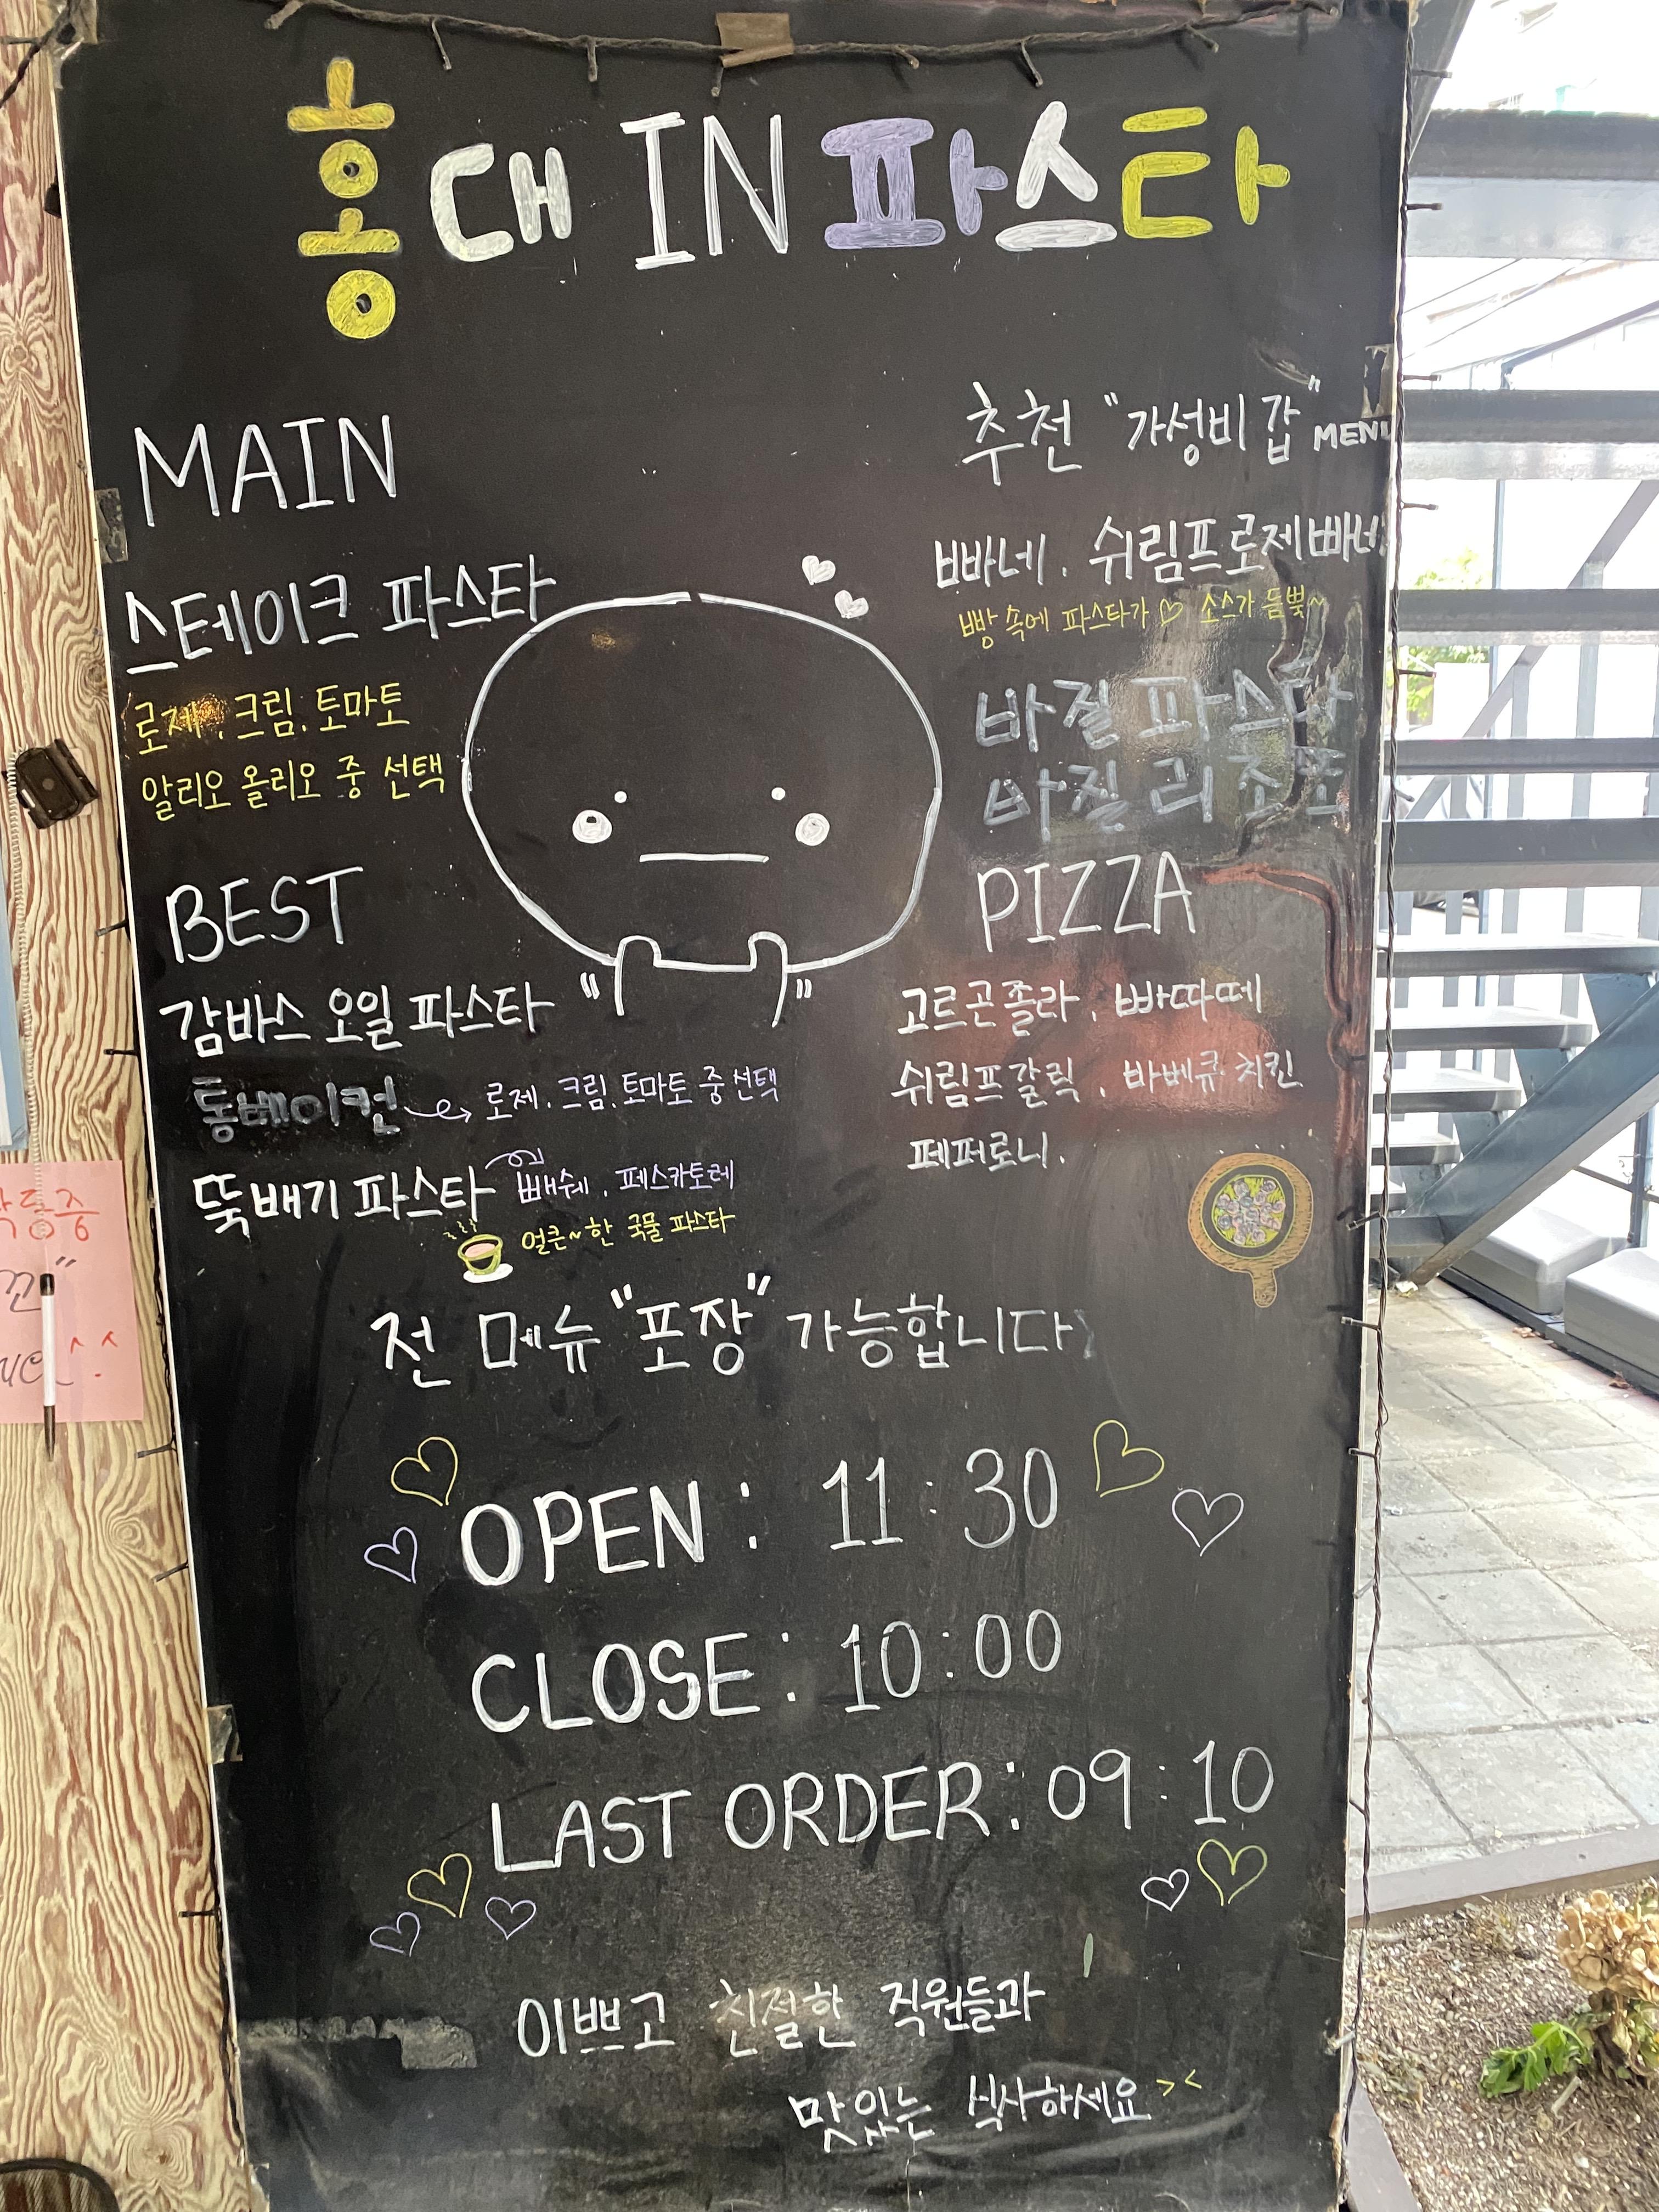 홍대 IN 파스타
MAIN
스테이크 파스타
로제. 크림. 토마토
알리오 올리오 중 선택
BEST
감바스 오일 파스타
통베이컨 → 로제. 크림. 토마토 중 선택
뚝배기 파스타 빼쉐. 페스카토레
얼큰~한 국물 파스타
추천 "가성비 갑" MENU
빠네. 쉬림프로제빠네
빵 속에 파스타가 ♡ 소스가 듬뿍~
바질 파스타
바질 리조또
PIZZA
고르곤졸라. 빠따떼
쉬림프갈릭. 바베큐치킨
페퍼로니.
전 메뉴 "포장" 가능합니다
OPEN : 11:30
CLOSE : 10:00
LAST ORDER : 09:10
이쁘고 친절한 직원들과
맛있는 식사하세요 ><